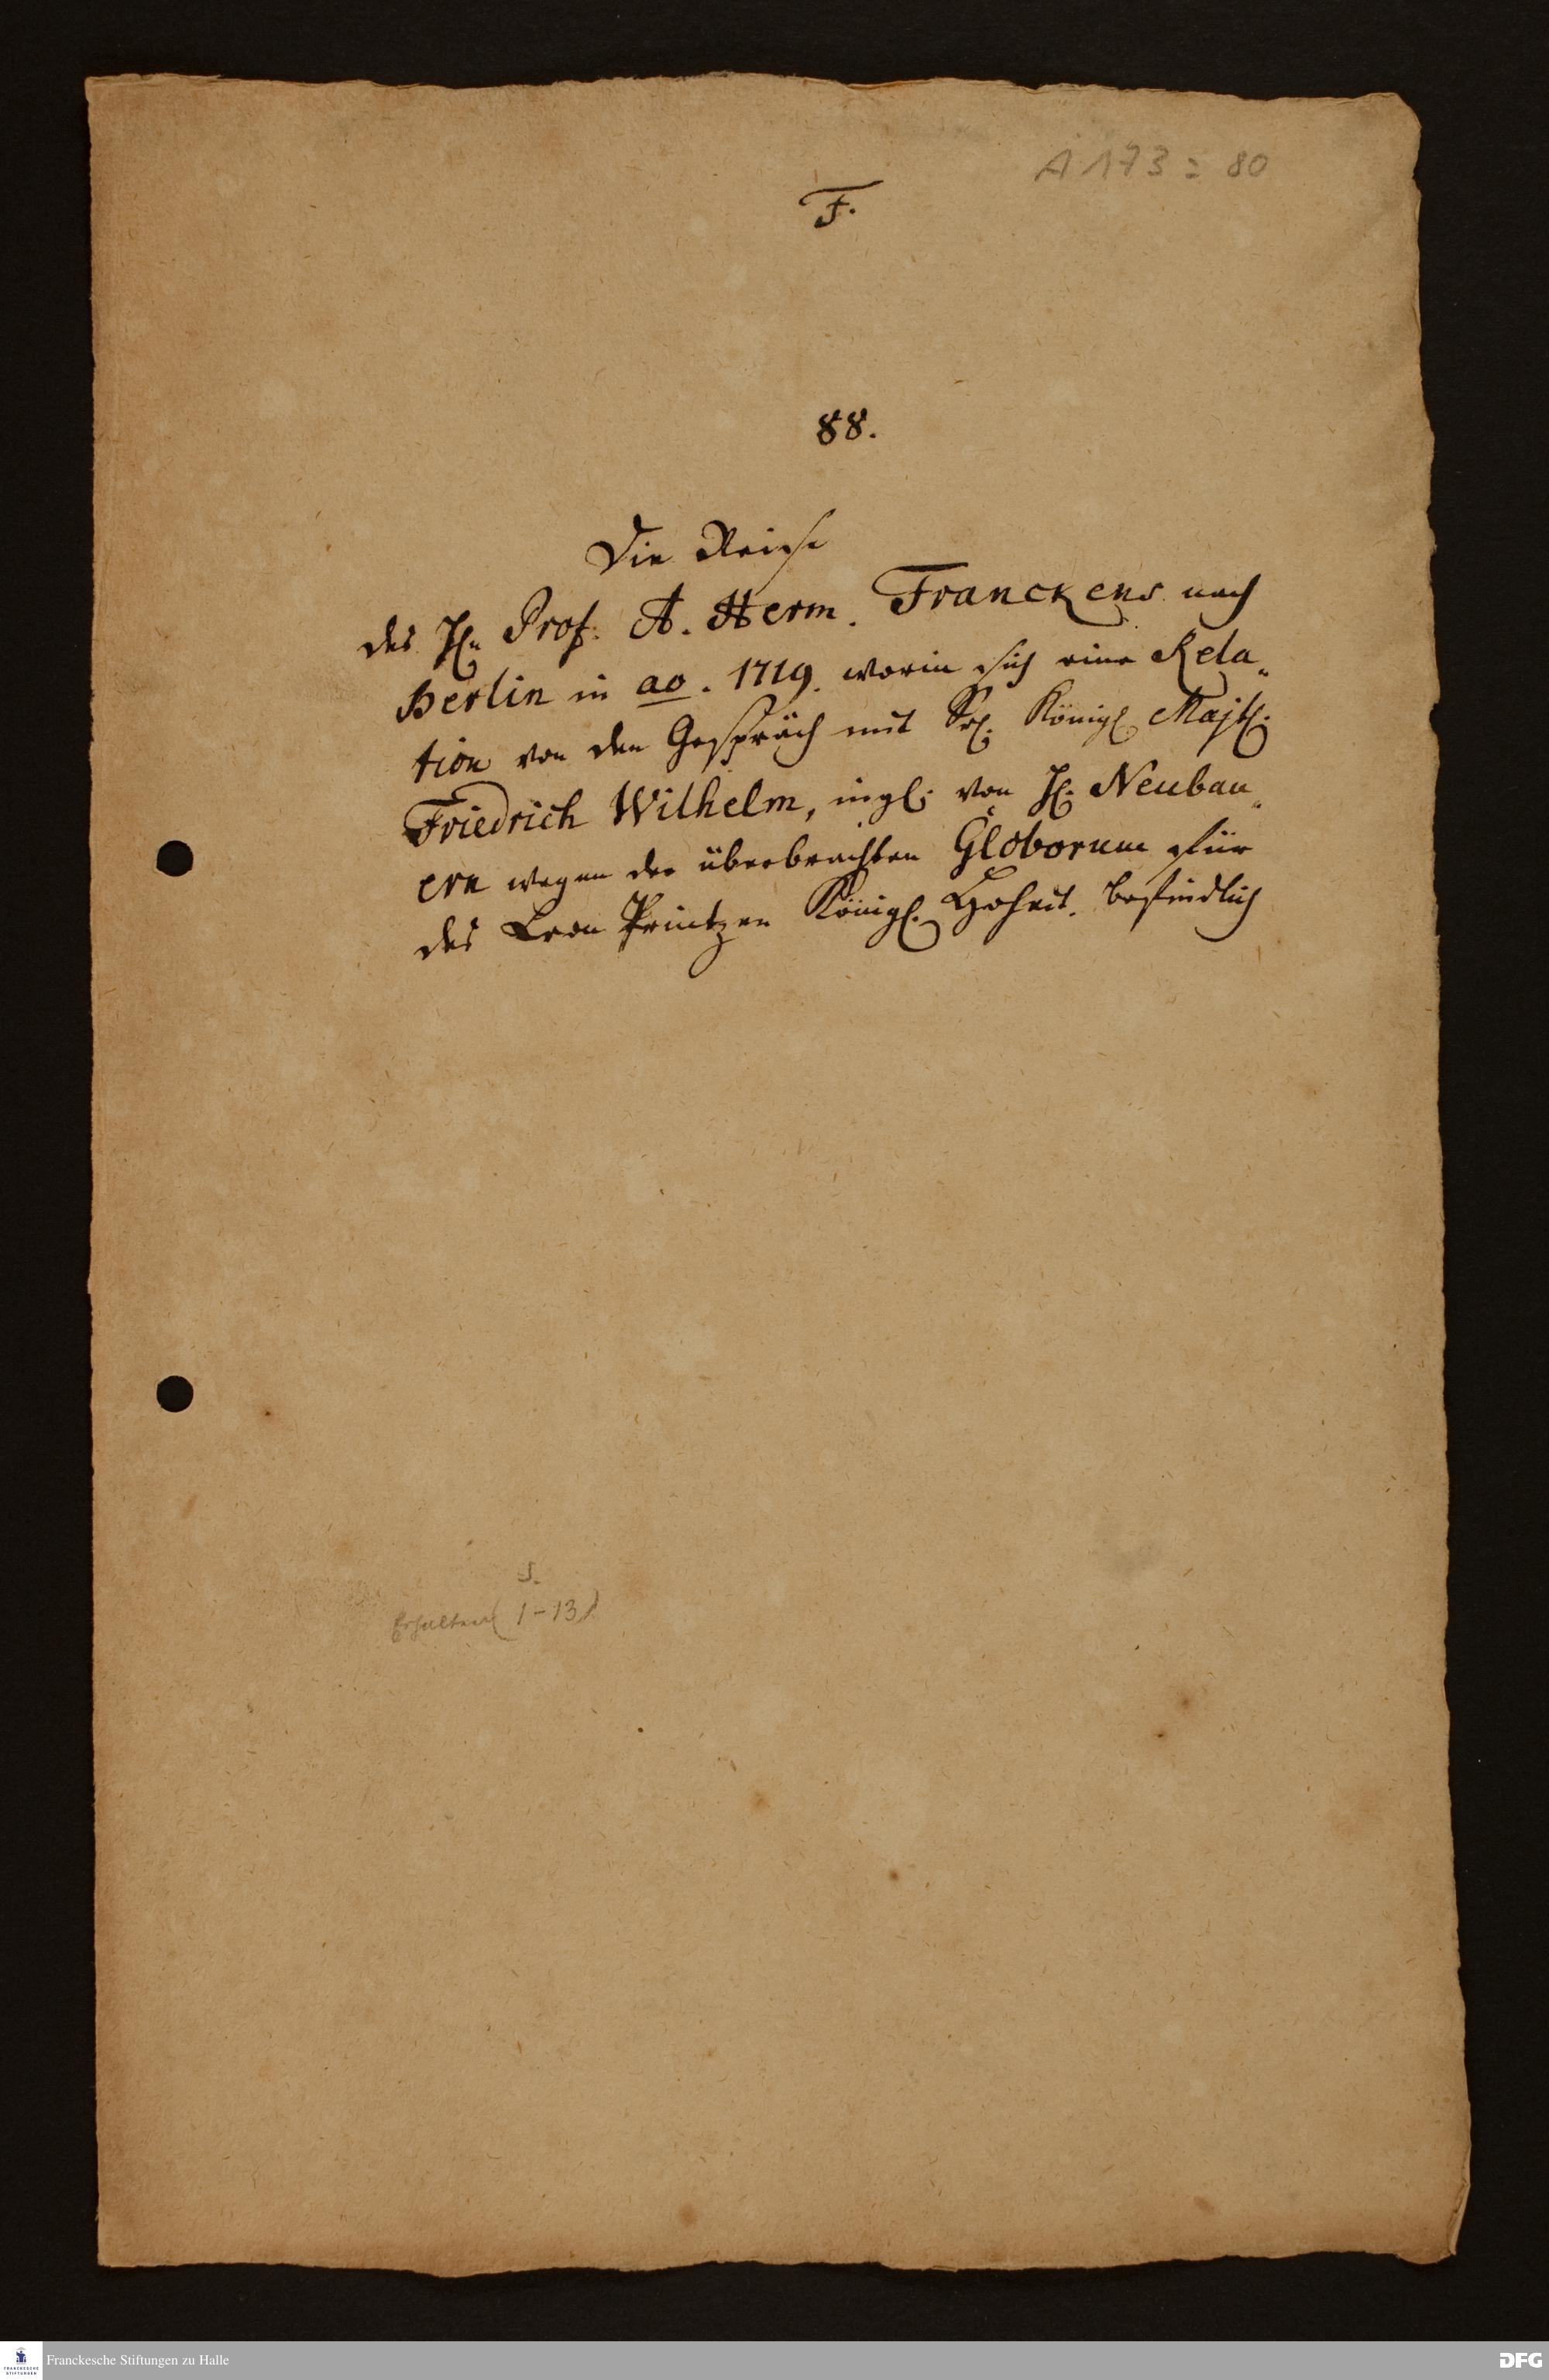 A 173 : 80
F.
88.
Die Reise
des H. Prof. A. Herm. Franckens nach
Berlin in ao. 1719. worin sich eine Rela„
tion von den Gespräch mit Sr. Königl. Majt.
Friedrich Wilhelm, ingl. von H. Neubau„
ern wegen der überbrachten Globorum für
des Cron Printzen Königl. Hoheit. befindlich
S.
Erhalten (1-13)
Franckesche Stiftungen zu Halle
FRANCKESCHE
STIFTUNGEN
DFG